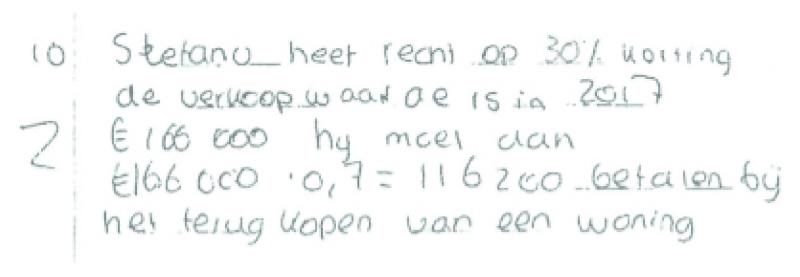 10 Stefano heet recht op 30% korting
de verkoop waarde is in 2017
2 € 166 000 hy moet dan
€166 000 · 0,7 = 116 200 betalen bij
het terug kopen van een woning